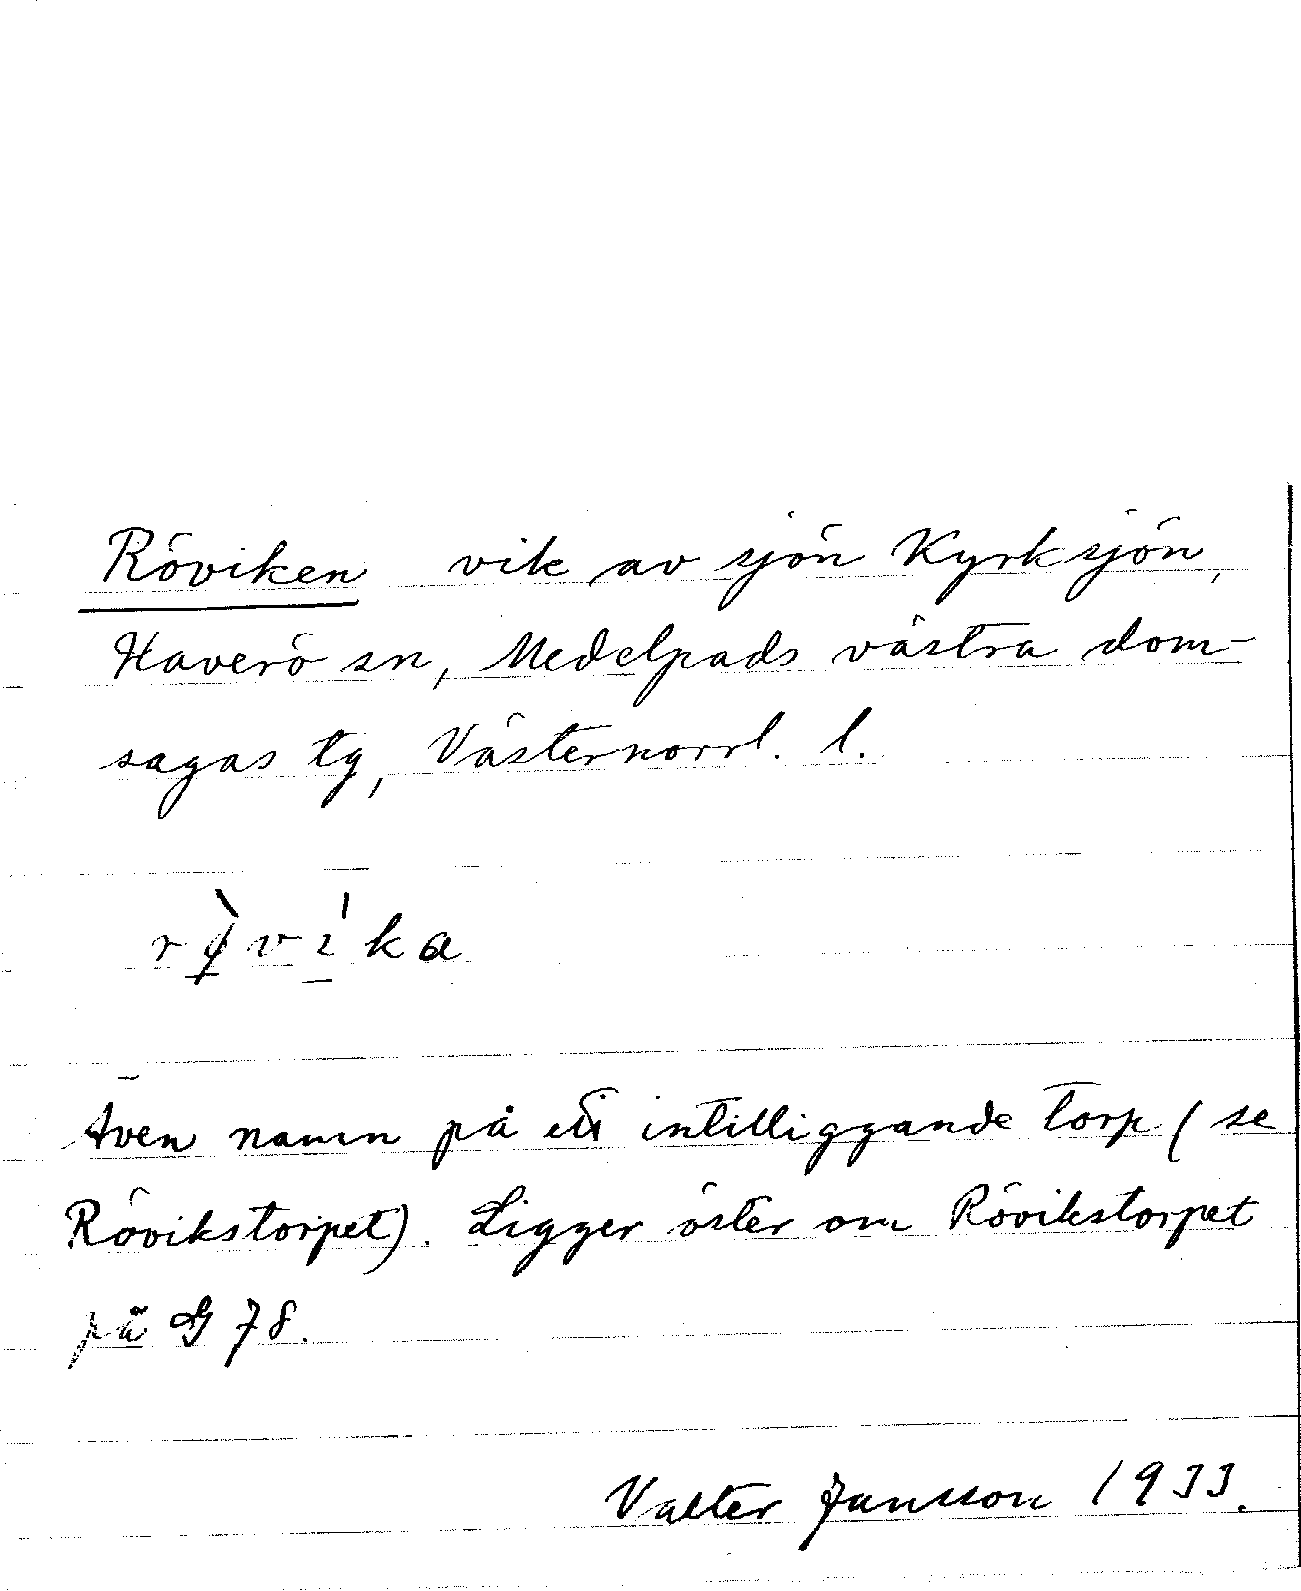 Röviken vik av sjön Kyrksjön,
Haverö sn, Medelpads västra dom-
sagas tg, Västernorrl. l.
rø̀vi̍ka
Även namn på ett intilliggande torp (se
Rövikstorpet). Ligger öster om Rövikstorpet
på G 78.
Valter Jansson 1933.